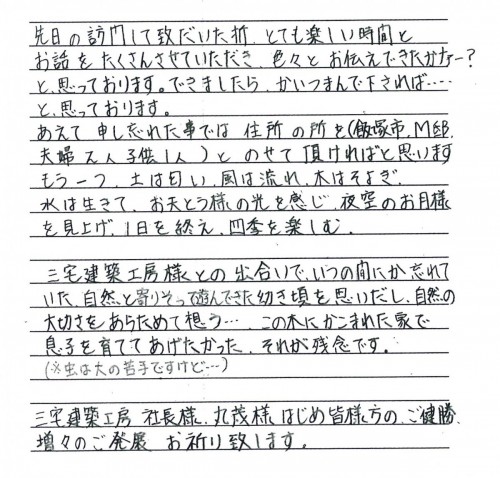 先日の訪問して致だいた折、とても楽しい時間と
お話をたくさんさせていただき、色々とお伝えできたかなー?
と、思っております。できましたら、かいつまんで下されば‥‥
と、思っております。
あえて 申し忘れた事では 住所の所を(飯塚市、M邸、
夫婦2人、子供1人)と のせて頂ければと思います
もう一つ、土は匂い、風は流れ、木はそよぎ、
水は生きて、お天とう様の光を感じ、夜空のお月様
を見上げ、1日を終え、四季を楽しむ。
三宅建築工房様との出合いで、いつの間にか忘れて
いた、自然と寄りそって遊んできた幼き頃を思いだし、自然の
大切さをあらためて想う‥‥ この木にかこまれた家で
息子を育ててあげたかった、それが残念です。
(※虫は大の苦手ですけど‥‥)
三宅建築工房 社長様、丸茂様、はじめ皆様方の、ご健勝、
増々のご発展、お祈り致します。